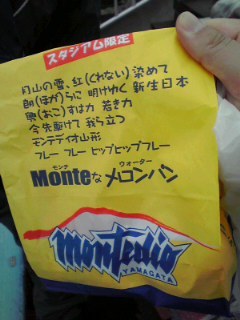 スタジアム限定
月山の雪、紅(くれない)染めて
朗(ほが)らに 明けゆく 新生日本
興(おこ)すは力 若き力
今先駆けて 我ら立つ
モンテディオ山形
フレー フレー ヒップヒップフレー
モンテ ウォーター
Monteな メロンパン
Montedio
YAMAGATA